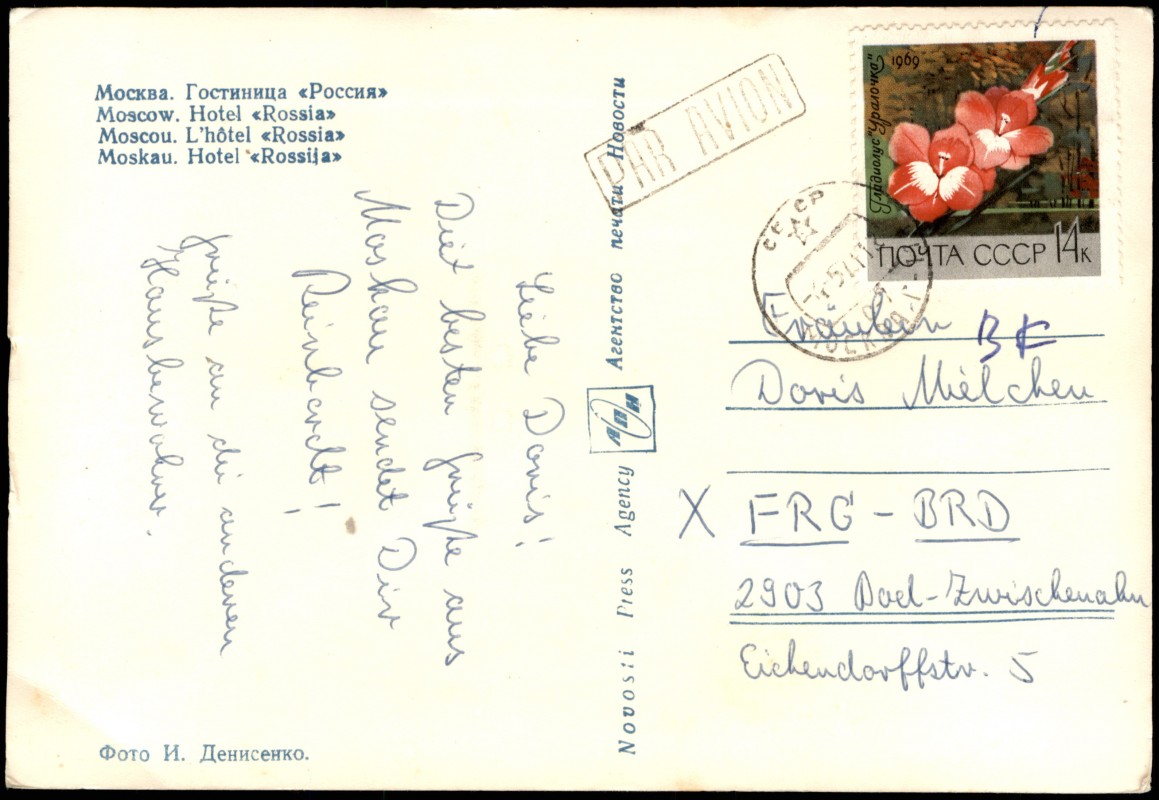 Москва. Гостиница «Россия»
Moscow. Hotel «Rossia»
Moscou. L'hôtel «Rossia»
Moskau. Hotel «Rossija»
Liebe Doris!
Die besten Grüße aus
Moskau sendet Dir
Reinhardt!
Grüße an die anderen
Hausbewohner.
Фото И. Денисенко.
Novosti Press Agency АПН Агентство печати Новости
PAR AVION
Гладиолус "Уралочка"
1969
ПОЧТА СССР 14к
СССР
МОСКВА
Fräulein
BK
Doris Mielchen
X FRG - BRD
2903 Bad-Zwischenahn
Eichendorffstr. 5